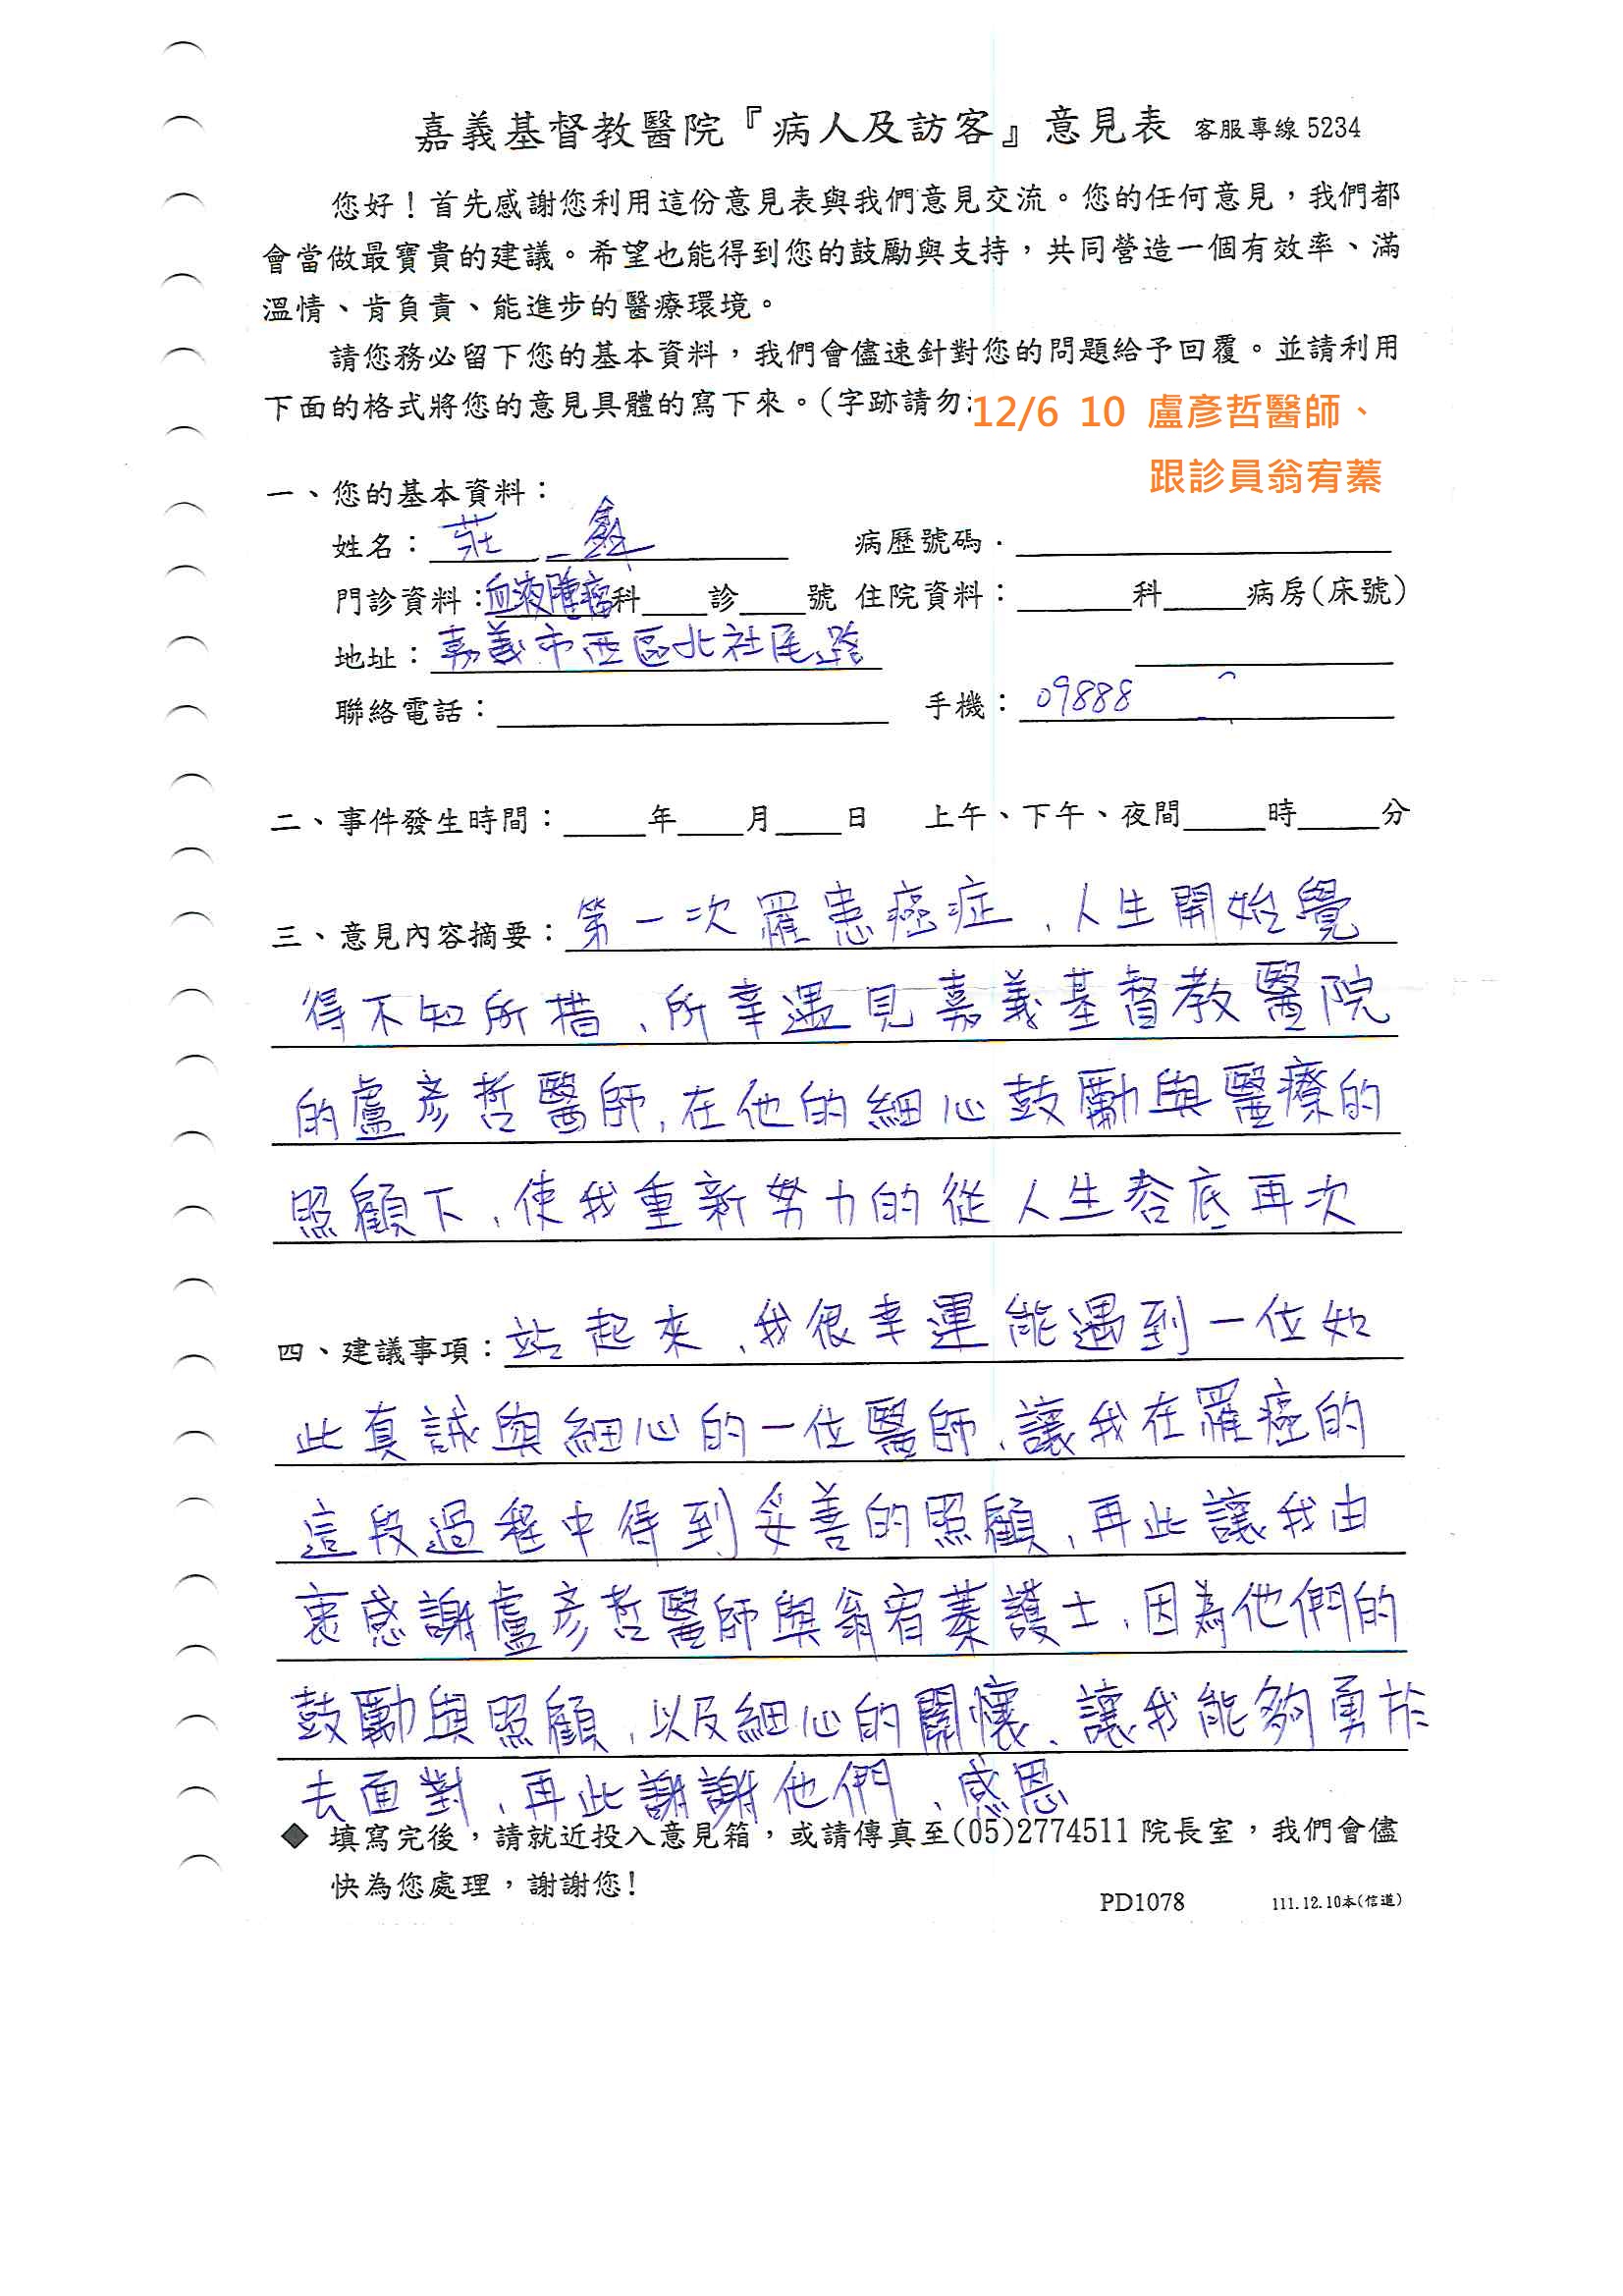 嘉義基督教醫院『病人及訪客』意見表 客服專線 5234
您好！首先感謝您利用這份意見表與我們意見交流。您的任何意見，我們都
會當做最寶貴的建議。希望也能得到您的鼓勵與支持，共同營造一個有效率、滿
溫情、肯負責、能進步的醫療環境。
請您務必留下您的基本資料，我們會儘速針對您的問題給予回覆。並請利用
下面的格式將您的意見具體的寫下來。(字跡請勿
12/6 10 盧彥哲醫師、
跟診員翁宥蓁
一、您的基本資料：
姓名：莊 鑫 病歷號碼．
門診資料：血液腫瘤科____診____號 住院資料：______科_____病房(床號)
地址：嘉義市西區北社尾路
聯絡電話： 手機：09888
二、事件發生時間：_____年____月____日 上午、下午、夜間_____時_____分
三、意見內容摘要：第一次罹患癌症、人生開始覺
得不知所措、所幸遇見嘉義基督教醫院
的盧彥哲醫師、在他的細心鼓勵與醫療的
照顧下、使我重新努力的從人生谷底再次
四、建議事項：站起來、我很幸運能遇到一位如
此真誠與細心的一位醫師、讓我在罹癌的
這段過程中得到妥善的照顧、再此讓我由
衷感謝盧彥哲醫師與翁宥蓁護士、因為他們的
鼓勵與照顧、以及細心的關懷、讓我能夠勇於
去面對、再此謝謝他們、感恩
◆ 填寫完後，請就近投入意見箱，或請傳真至(05)2774511院長室，我們會儘
快為您處理，謝謝您!
PD1078 111.12.10本(信道)